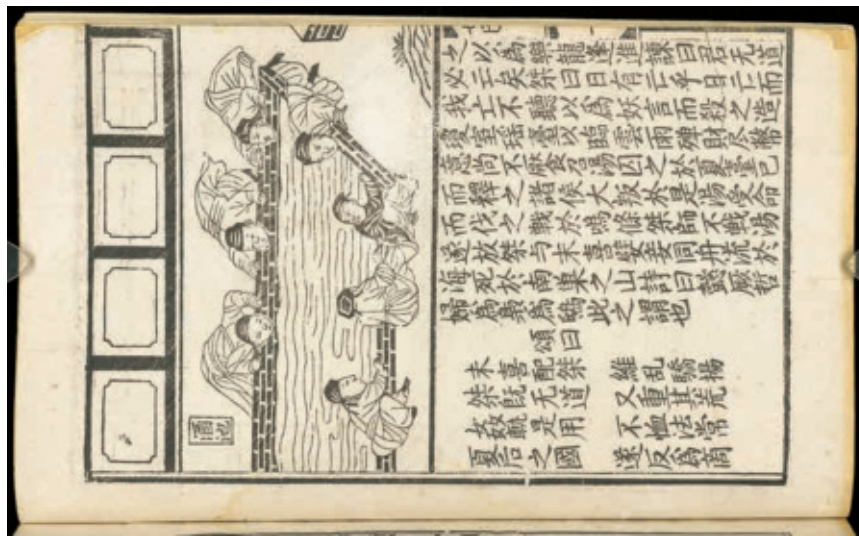 之以為樂龍逢進諫曰君无道
必亡矣桀曰日有亡乎日亡而
我亡不聽以為妖言而殺之造
瓊室瑶臺以臨雲雨殫財尽幣
意尚不饜召湯囚之於夏臺已
而釋之諸侯大叛於是湯受命
而伐之戰於鳴條桀師不戦湯
遂放桀与末喜嬖妾同舟流於
海死於南巢之山詩曰懿厥哲
婦為梟為鴟此之謂也
頌曰
末喜配桀 維乱驕揚
桀既无道 又重其荒
姦軌是用 不恤法常
夏后之國 遂反為商
酒池